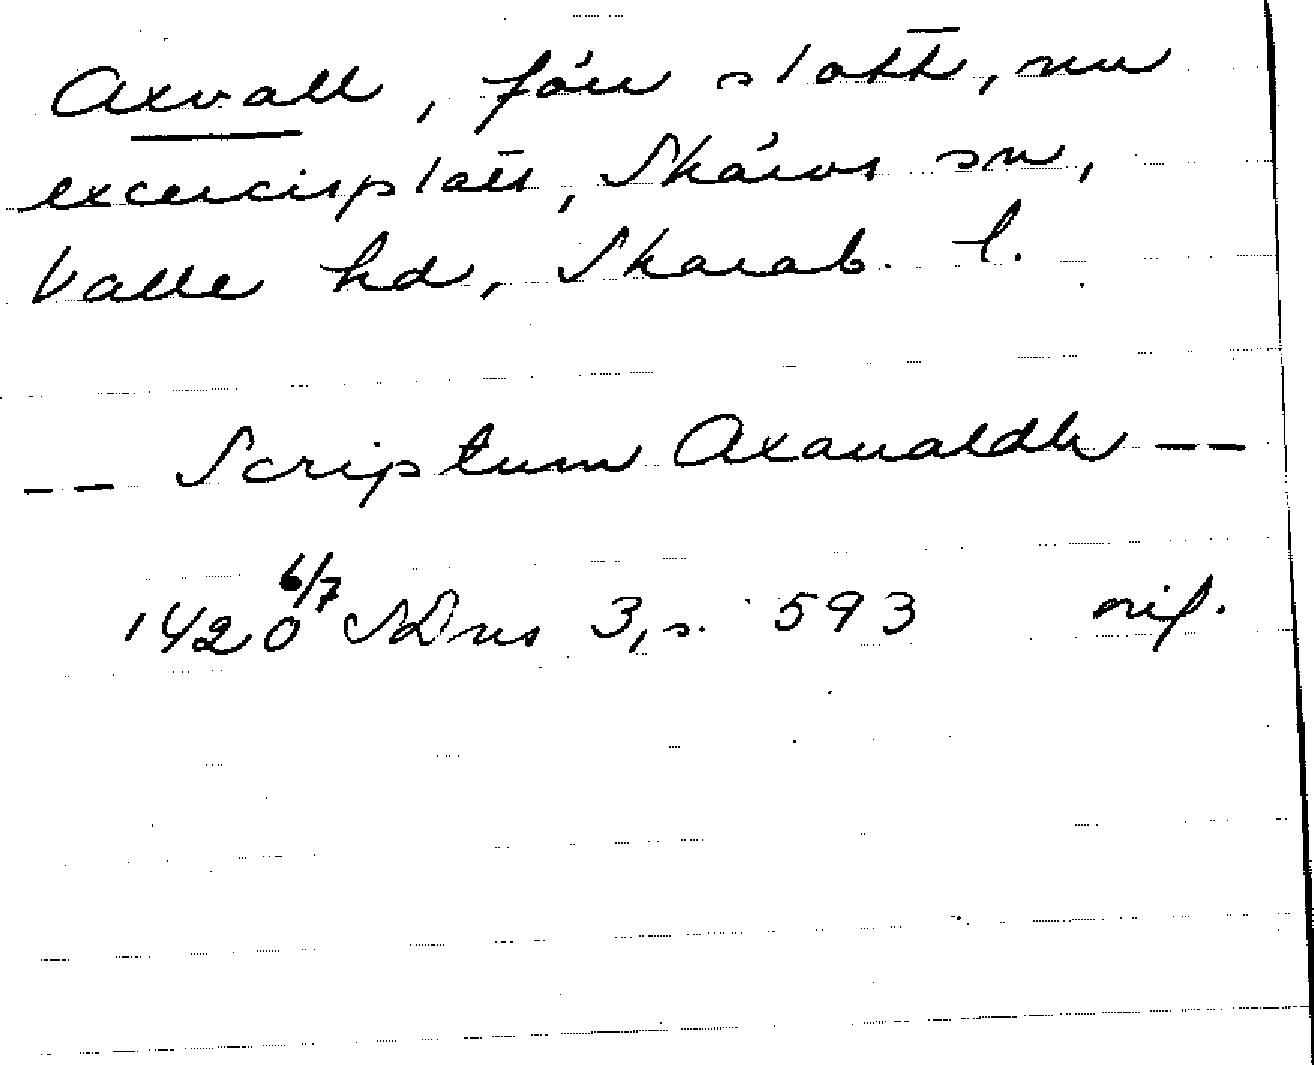 Axvall, förr slott, nu
excercisplats, Skärvs sn,
Valle hd, Skarab. l.
-- Scriptum Axaualdh --
1420 6/7 SDns 3, s. 593 rif.